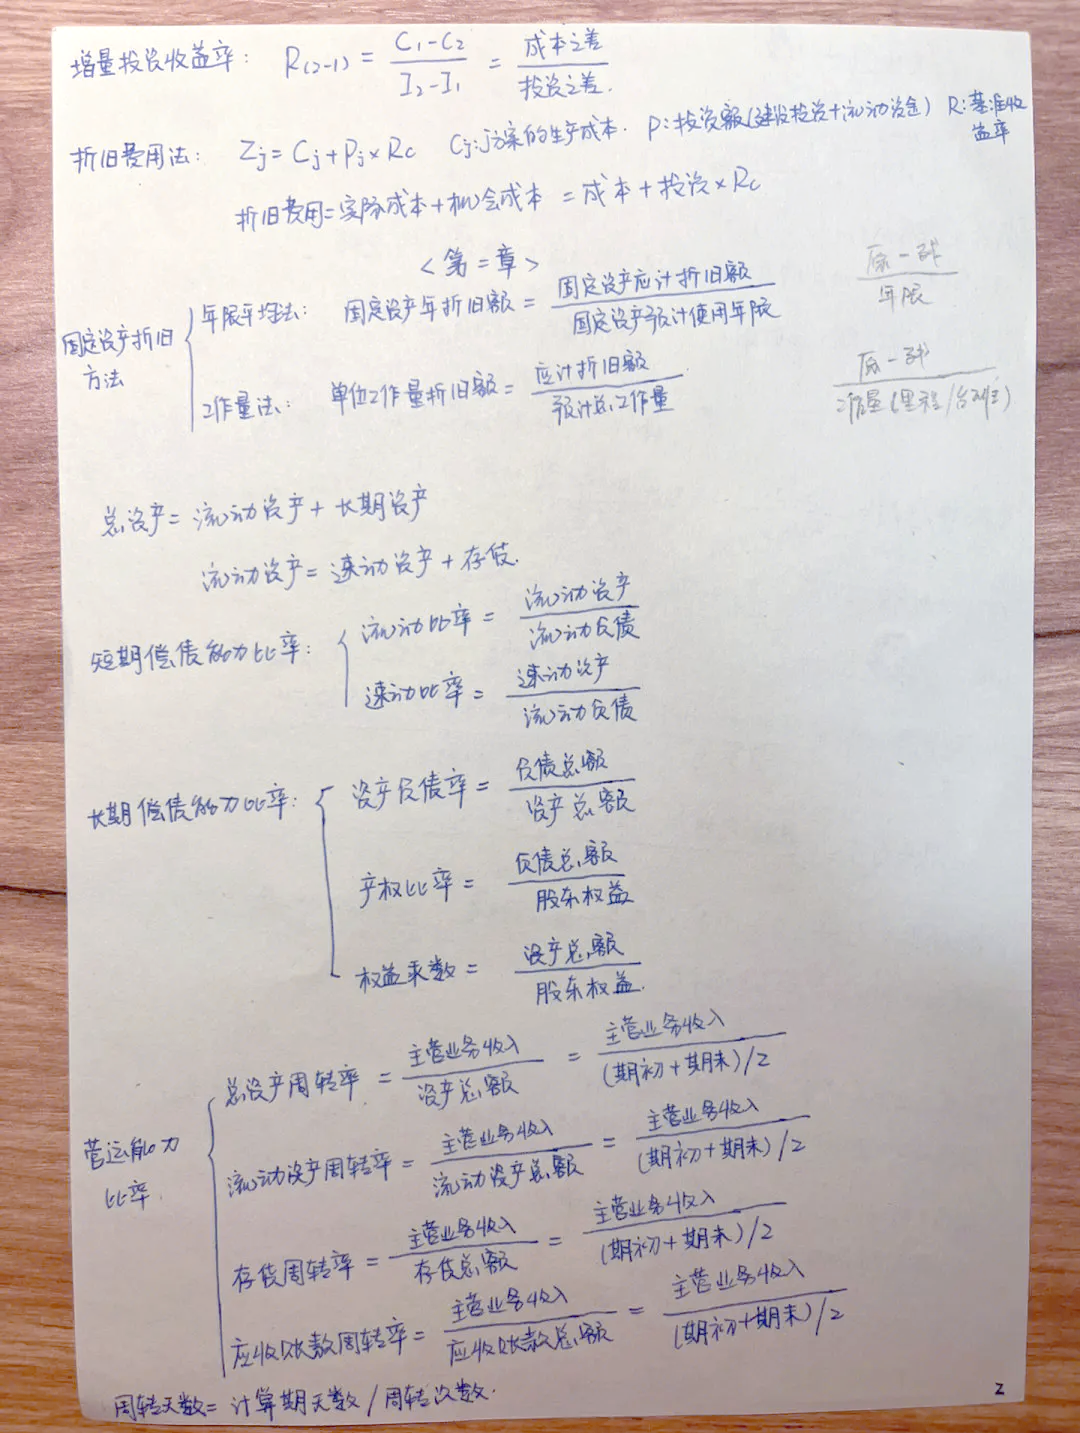 增量投资收益率: R(2-1) = C₁-C₂ / I₂-I₁ = 成本之差 / 投资之差.
折旧费用法: Zj = Cj + Pj × Rc Cj:j方案的生产成本. P:投资额(建设投资+流动资金) R:基准收益率
折旧费用=实际成本+机会成本 = 成本+投资×Rc
<第二章>
固定资产折旧方法
年限平均法: 固定资产年折旧额 = 固定资产应计折旧额 / 固定资产预计使用年限
原-残 / 年限
工作量法: 单位工作量折旧额 = 应计折旧额 / 预计总工作量
原-残 / 工作量(里程/台班)
总资产 = 流动资产 + 长期资产
流动资产 = 速动资产 + 存货.
短期偿债能力比率:
流动比率 = 流动资产 / 流动负债
速动比率 = 速动资产 / 流动负债
长期偿债能力比率:
资产负债率 = 负债总额 / 资产总额
产权比率 = 负债总额 / 股东权益
权益乘数 = 资产总额 / 股东权益.
营运能力比率
总资产周转率 = 主营业务收入 / 资产总额 = 主营业务收入 / (期初+期末)/2
流动资产周转率 = 主营业务收入 / 流动资产总额 = 主营业务收入 / (期初+期末)/2
存货周转率 = 主营业务收入 / 存货总额 = 主营业务收入 / (期初+期末)/2
应收账款周转率 = 主营业务收入 / 应收账款总额 = 主营业务收入 / (期初+期末)/2
周转天数 = 计算期天数 / 周转次数.
2